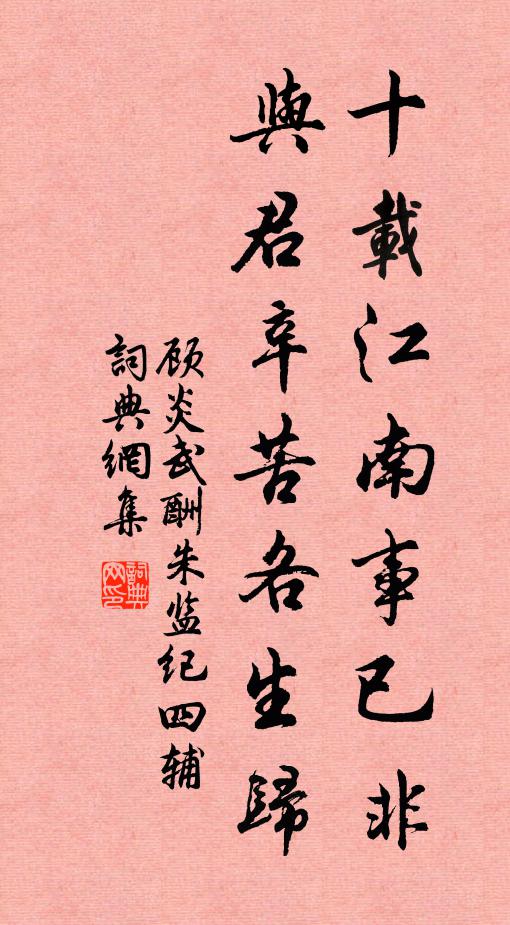 十載江南事已非
與君辛苦各生歸
顾炎武酬朱监纪四辅
詞典網集
詞典
网印